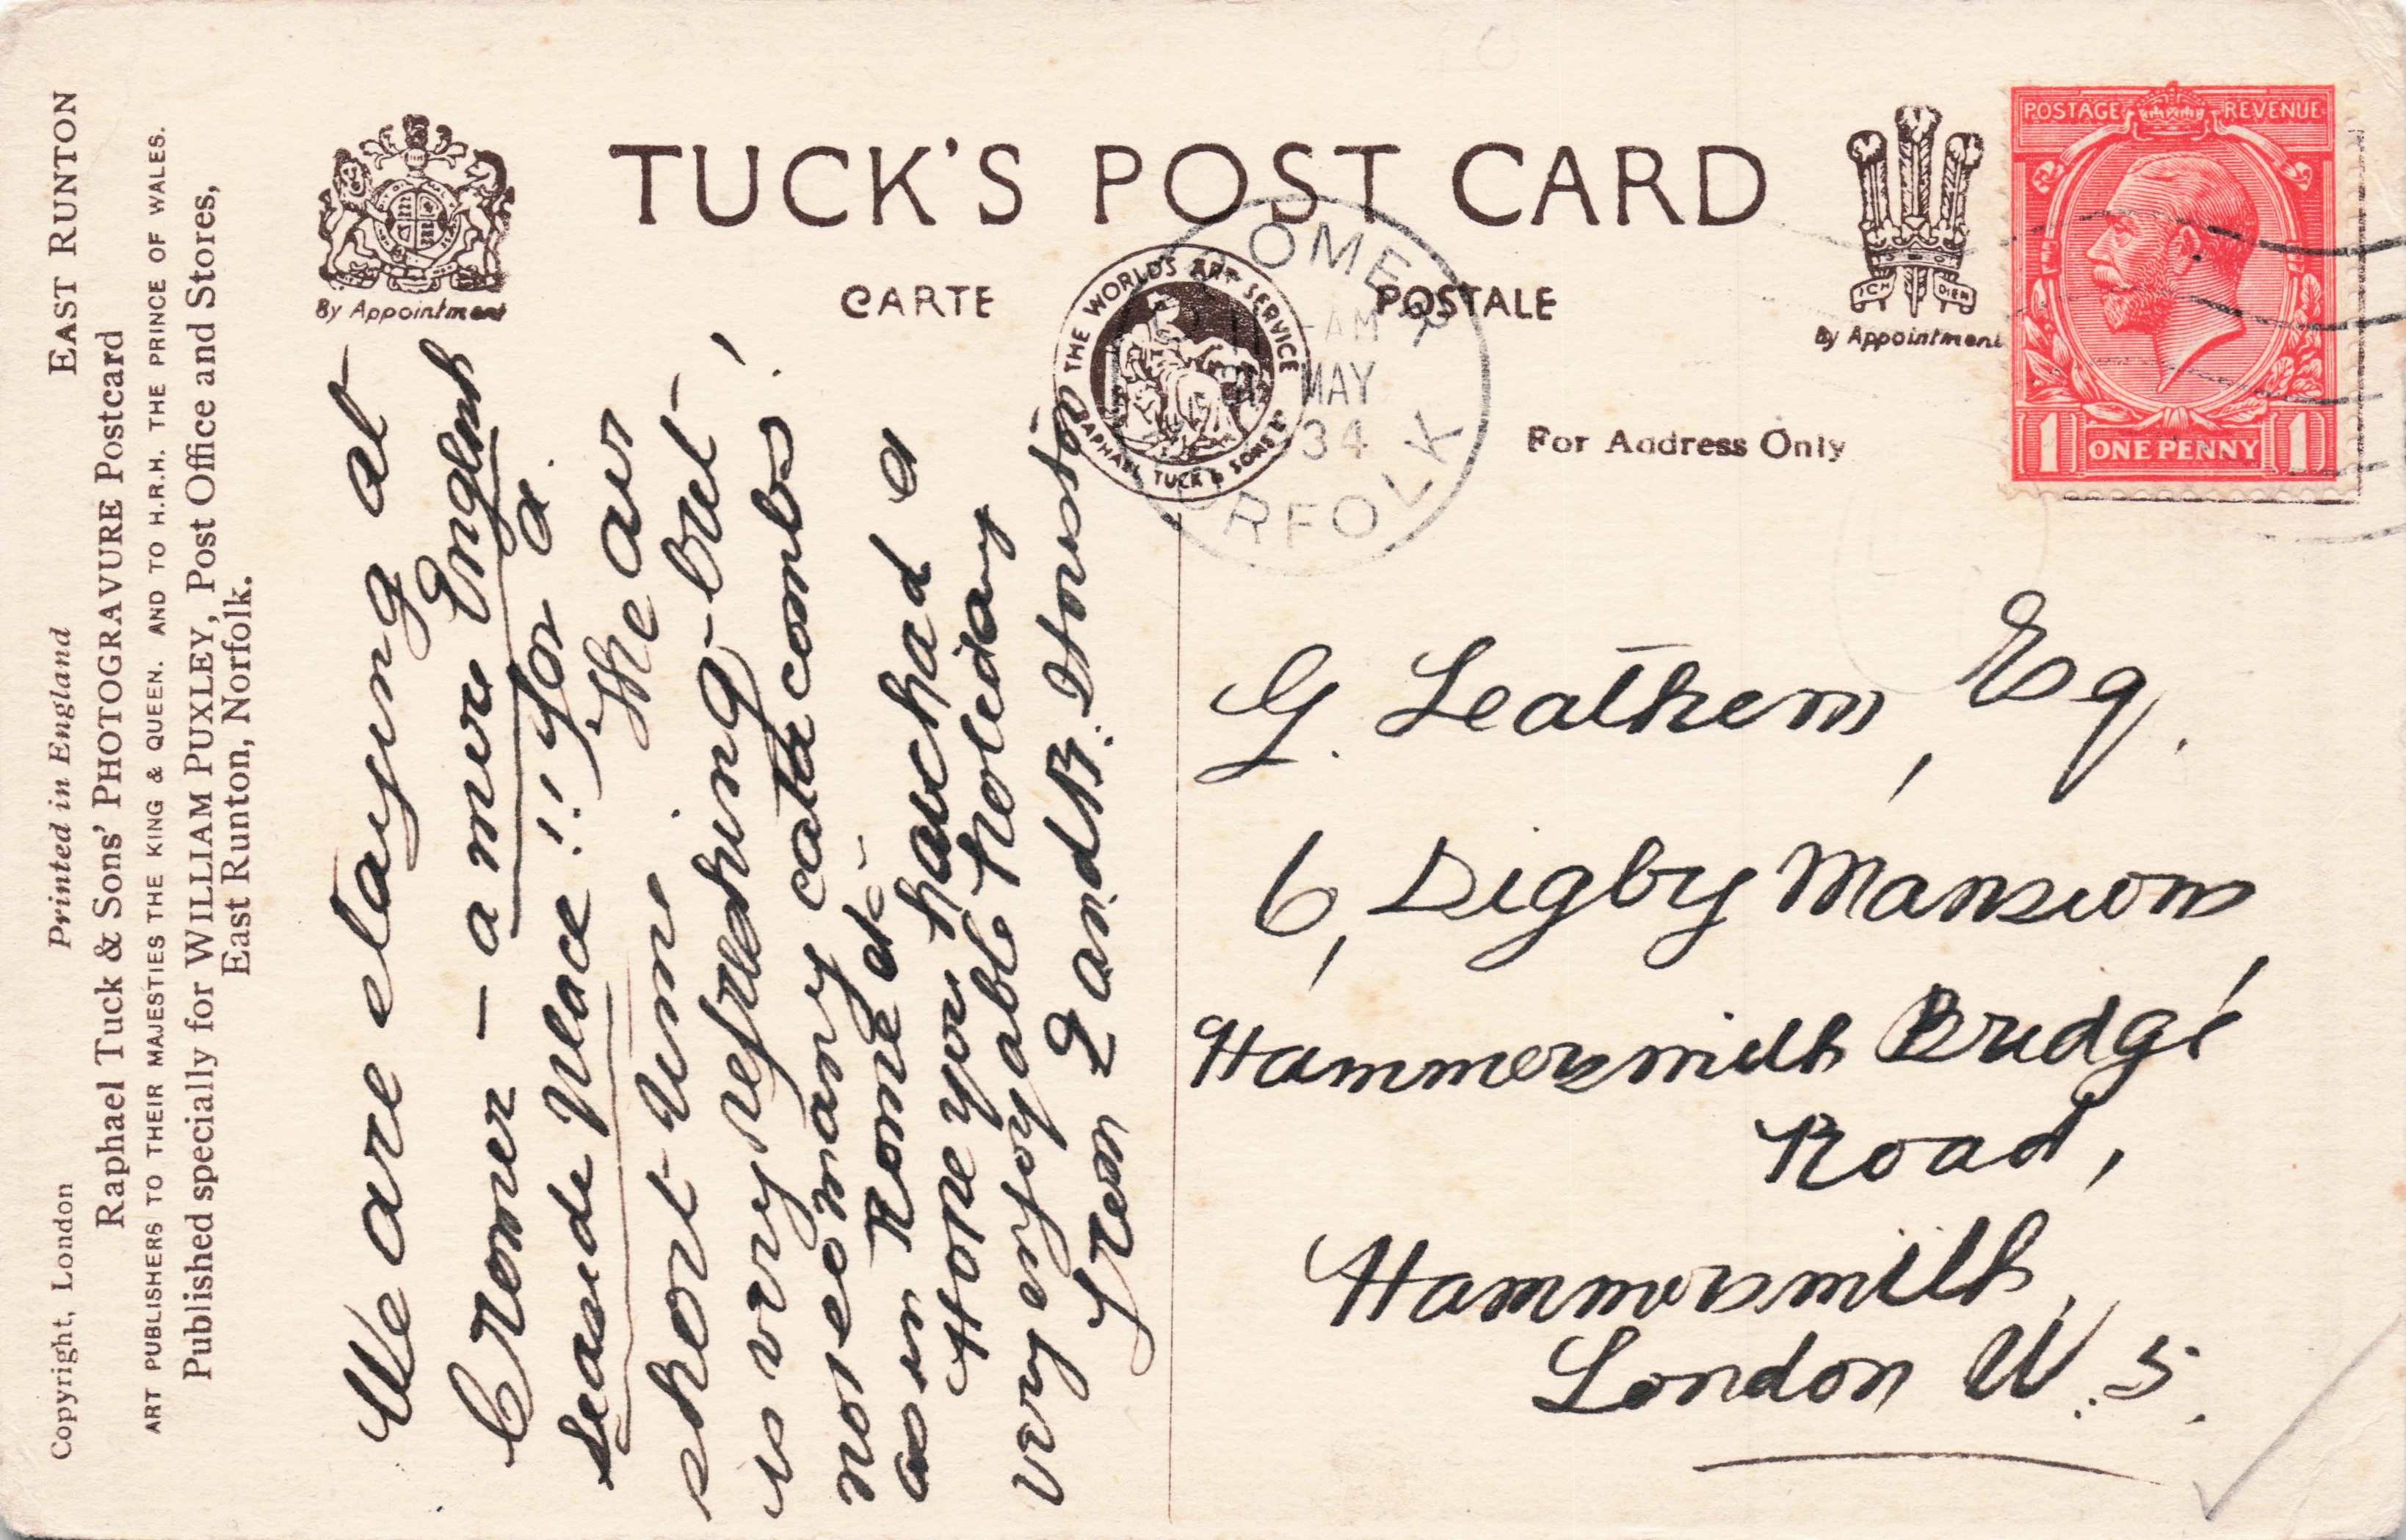 TUCK'S POST CARD
CARTE POSTALE
By Appointment
By Appointment
ICH DIEN
THE WORLD'S ART SERVICE
RAPHAEL TUCK & SONS
For Address Only
POSTAGE REVENUE
1 ONE PENNY 1
OMER
AM
MAY
34
RFOLK
Copyright, London Printed in England EAST RUNTON
Raphael Tuck & Sons' PHOTOGRAVURE Postcard
ART PUBLISHERS TO THEIR MAJESTIES THE KING & QUEEN. AND TO H.R.H. THE PRINCE OF WALES.
Published specially for WILLIAM PUXLEY, Post Office and Stores,
East Runton, Norfolk.
We are staying at
Cromer – a mere English
seaside place!! for a
short time The air
is very refreshing – but
not so many catacombs!
as in Rome etc –
Hope you have had a
very enjoyable holiday
from L and B.
G. Leathem, Esq.
6, Digby Mansions,
Hammersmith Bridge
Road,
Hammersmith,
London W. 5.